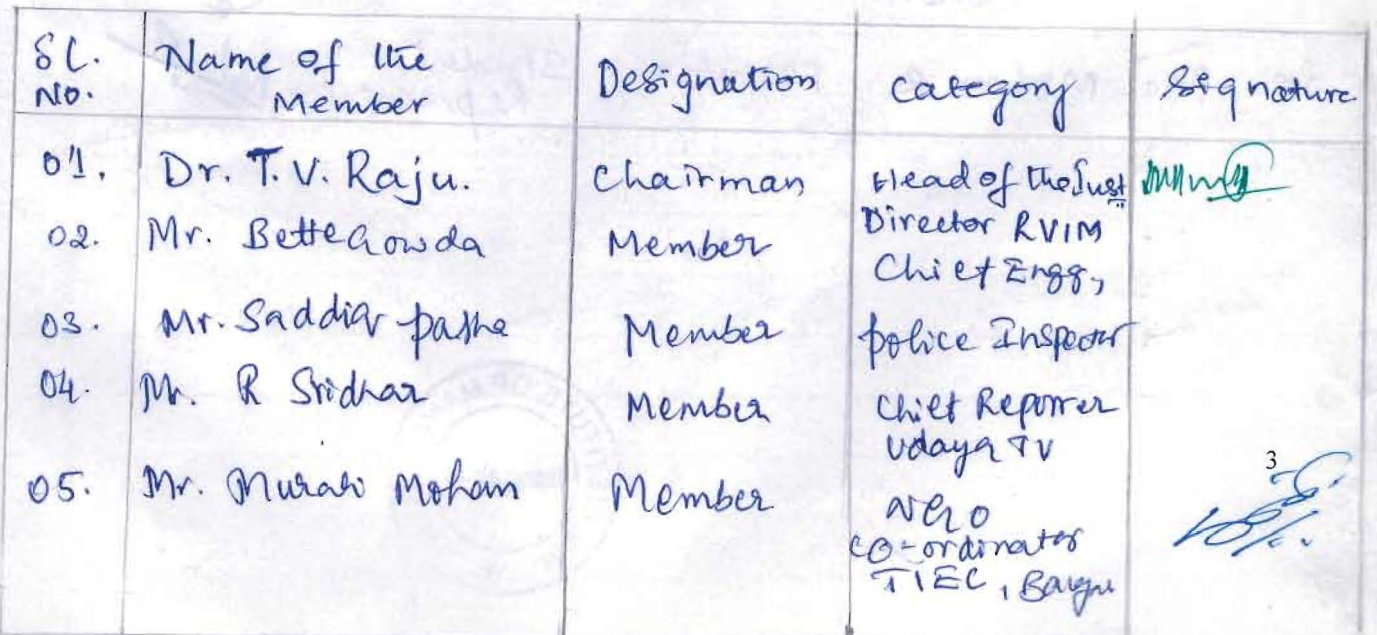 Sl. Name of the Designation Category Signature
No. Member
01. Dr. T. V. Raju. Chairman Head of the Inst
Director RVIM
02. Mr. Bettegowda Member Chief Engg,
03. Mr. Saddiq pasha Member police Inspector
04. Mr. R Sridhar Member Chief Reporter
Udaya TV
3
05. Mr. Murali Mohan Member NGO
co-ordinator
TIEC,